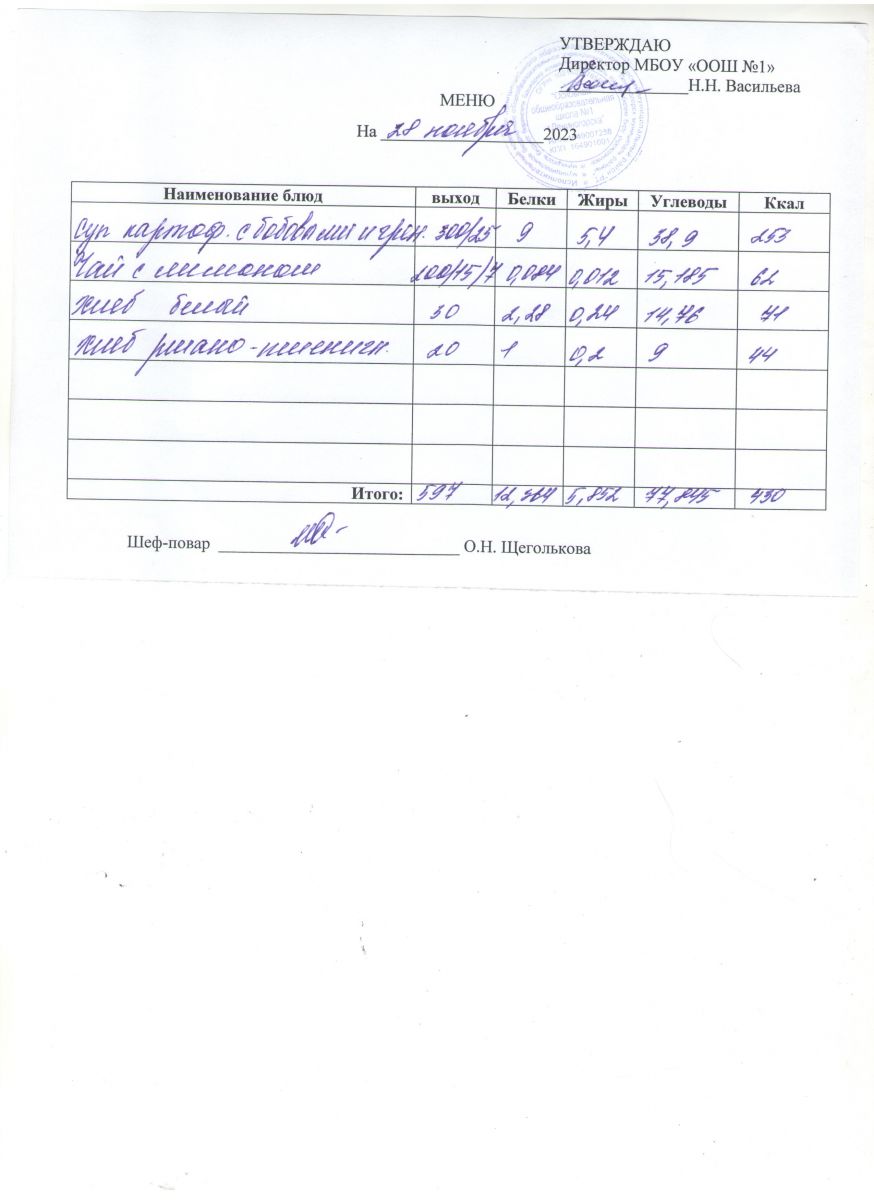 УТВЕРЖДАЮ
Директор МБОУ «ООШ №1»
Н.Н. Васильева
МЕНЮ
На 28 ноября 2023
"Основная
общеобразовательная
школа №1"
г.Лениногорска"
КПП 164901001
Наименование блюд выход Белки Жиры Углеводы Ккал
Суп картоф. с бобовыми и грен. 300/25 9 5,4 38,9 253
Чай с лимоном 200/15/7 0,084 0,012 15,185 62
Хлеб белый 30 2,28 0,24 14,76 71
Хлеб ржано-пшеничн. 20 1 0,2 9 44
Итого: 597 12,364 5,852 77,845 430
Шеф-повар О.Н. Щеголькова